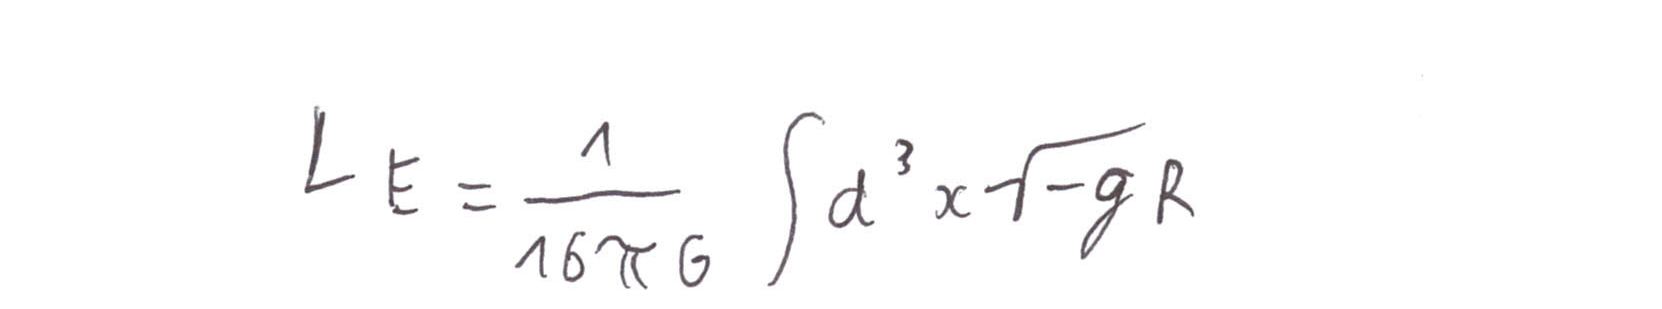 L_E = \frac{1}{16πG} \int d^3 x \sqrt{-g} R